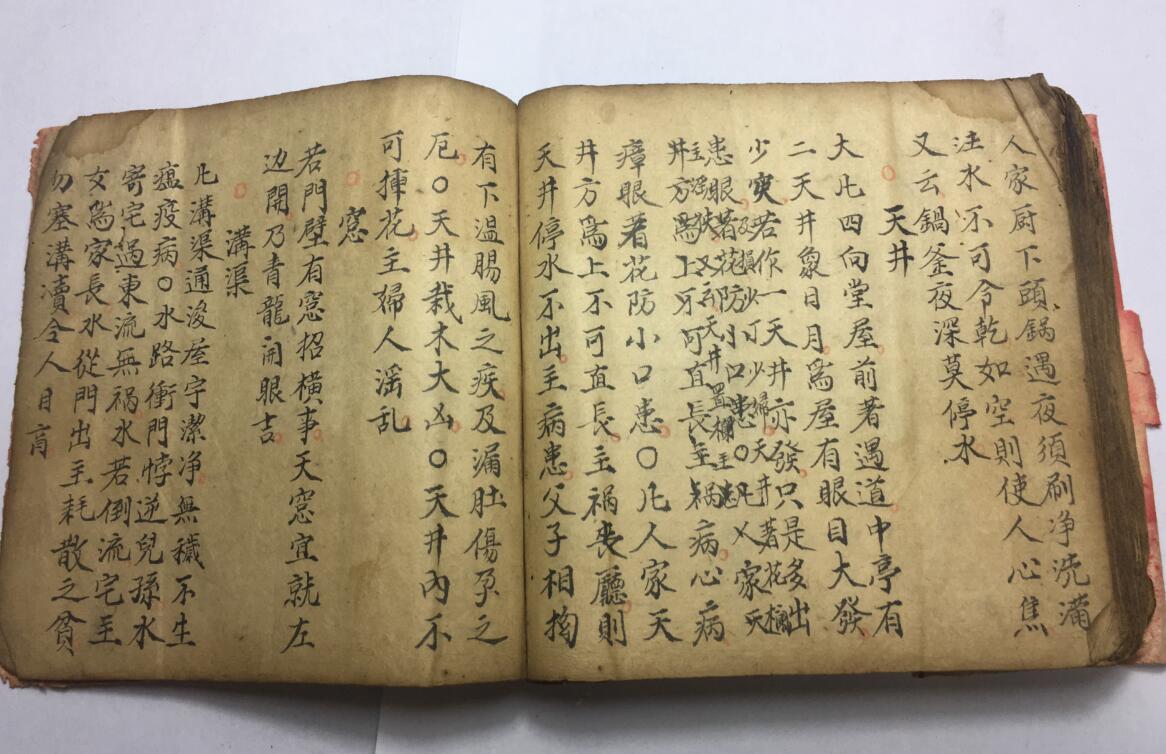 人家厨下頭鍋遇夜須刷净洗滿
注水不可令乾如空則使人心焦
又云鍋釜夜深莫停水
天井
大凢四向堂屋前著遇道中亭有
二天井象日月爲屋有眼目大發
少突若作一天井亦發只是多出
及損少丁少婦天井著花欄
患眼著花防小口患○凢人家天
主淫泆又云天井置欄主患
井方爲上不可直長主禍病心病
瘴眼著花防小口患○凢人家天
井方爲上不可直長主禍喪廳則
天井停水不出主病患父子相拘
有下温腸風之疾及漏肚傷孕之
厄○天井栽木大凶○天井內不
可揷花主婦人淫乱
窓
若門壁有窓招橫事天窓宜就左
边開乃青龍開眼吉
溝渠
凢溝渠通浚屋宇潔净無穢不生
瘟疫病○水路衝門悖逆兒孫水
寄宅過東流無禍水若倒流宅主
女爲家長水從門出主耗散之貧
勿塞溝瀆令人目盲